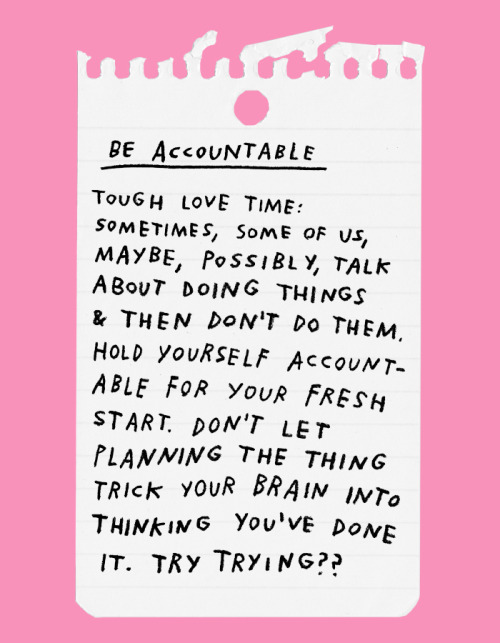 BE ACCOUNTABLE
TOUGH LOVE TIME:
SOMETIMES, SOME OF US,
MAYBE, POSSIBLY, TALK
ABOUT DOING THINGS
& THEN DON'T DO THEM.
HOLD YOURSELF ACCOUNT-
ABLE FOR YOUR FRESH
START. DON'T LET
PLANNING THE THING
TRICK YOUR BRAIN INTO
THINKING YOU'VE DONE
IT. TRY TRYING??